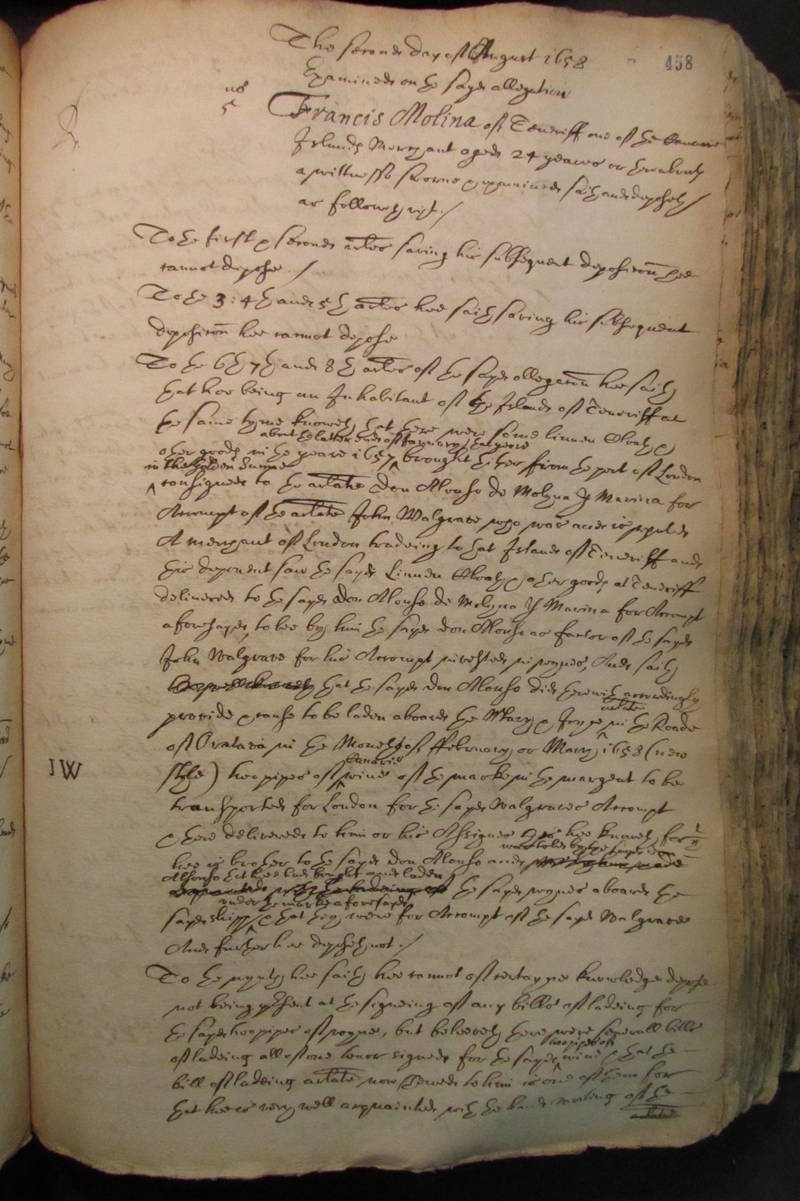 The second day of August 1658
458
Examined on the sayd allegation
Francis Molina of Teneriff one of the Canarie
Islands Merchant aged 24 yeares or thereabouts
a wittnesse sworne & examined saith and deposeth
as followeth vizt /
To the first & second articles saving his subsequent deposicon hee
cannot depose /
To the 3: 4th and 5th articles hee saith saving his subsequent
deposicon hee cannot depose
To the 6th 7th and 8th articles of the sayd allegacon hee saith
that hee being an Inhabitant of the Island of Teneriff at
the same tyme knoweth that there were some linnen Cloath &
about the latter end of January that yeare
other goods in the yeare 1657 brought thither from the port of London
in the Golden Sunne
consigned to the arlate don Alonso de Molina y Marina for
Accompt of the arlate John Walgrave who was and is reputed
A merchant of London trading to that Island of Teneriff and
this deponent saw the sayd Linnen Cloath & other goods at Teneriff
delivered to the sayd don Alonso de Molina y Marina for Accompt
aforesayd, to bee by him the sayd don Alonso as factor of the sayd
John Walgrave for his Accompt invested in wynes And saith
that the sayd don Alonso did therewith accordingly
arlate
provide & cause to be laden aboard the Mary & Joyce in the Roade
of Oratava in the Moneth of ffebruary or March 1658 (new
Canarie
style) two pipes of wine of the marke in the margent to be
IW
transported for London for the sayd Walgraves Accompt
& there delivered to him or his Assignes This hee knoweth for
hee is brother to the sayd don Alonso and
was told by the sayd don
Alonso that hee had bought and laden
the sayd wynes aboard the
under the marke aforesayd
sayd shipp & that they were for Accompt of the sayd Walgrave
And further hee deposeth not /
To the nynth hee saith hee cannot of certayne knowledge depose
not being present at the signeing of any bills of lading for
the sayd two pipes of wyne, but beleeveth there were severall bills
two pipes of
of lading all of one tenor signed for the sayd wine & that the
bill of lading arlate now shewed to him is one of them for
that hee is very well acquainted with the hand writing of the
arlate